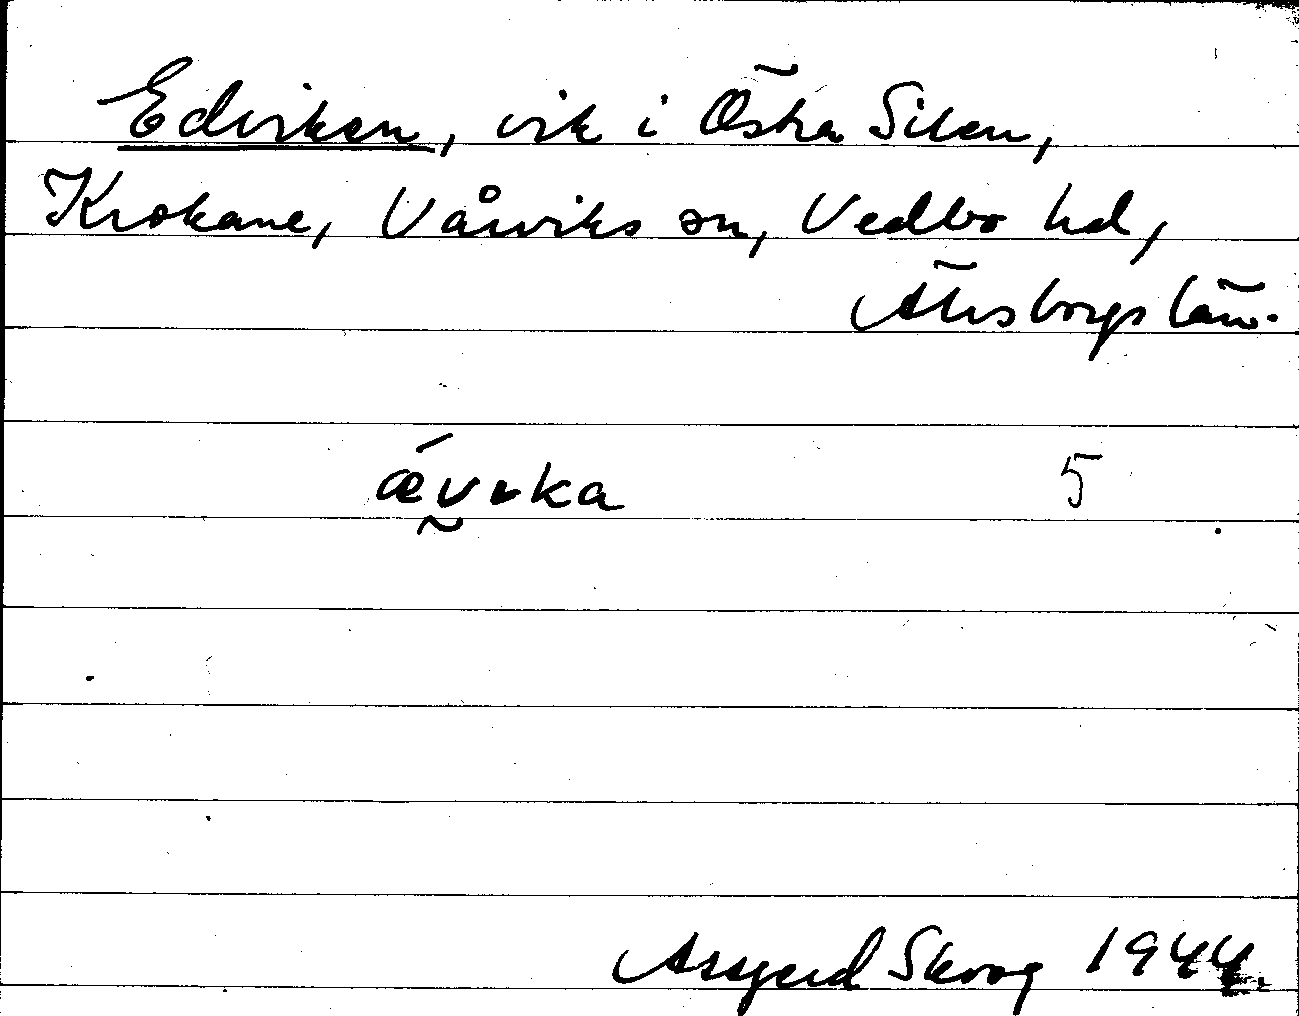 Edviken, vik i Östra Silen,
Krokane, Vårviks sn, Vedbo hd,
Älvsborgs län.
ǽvıka 5
Assgerd Skoog 1944.